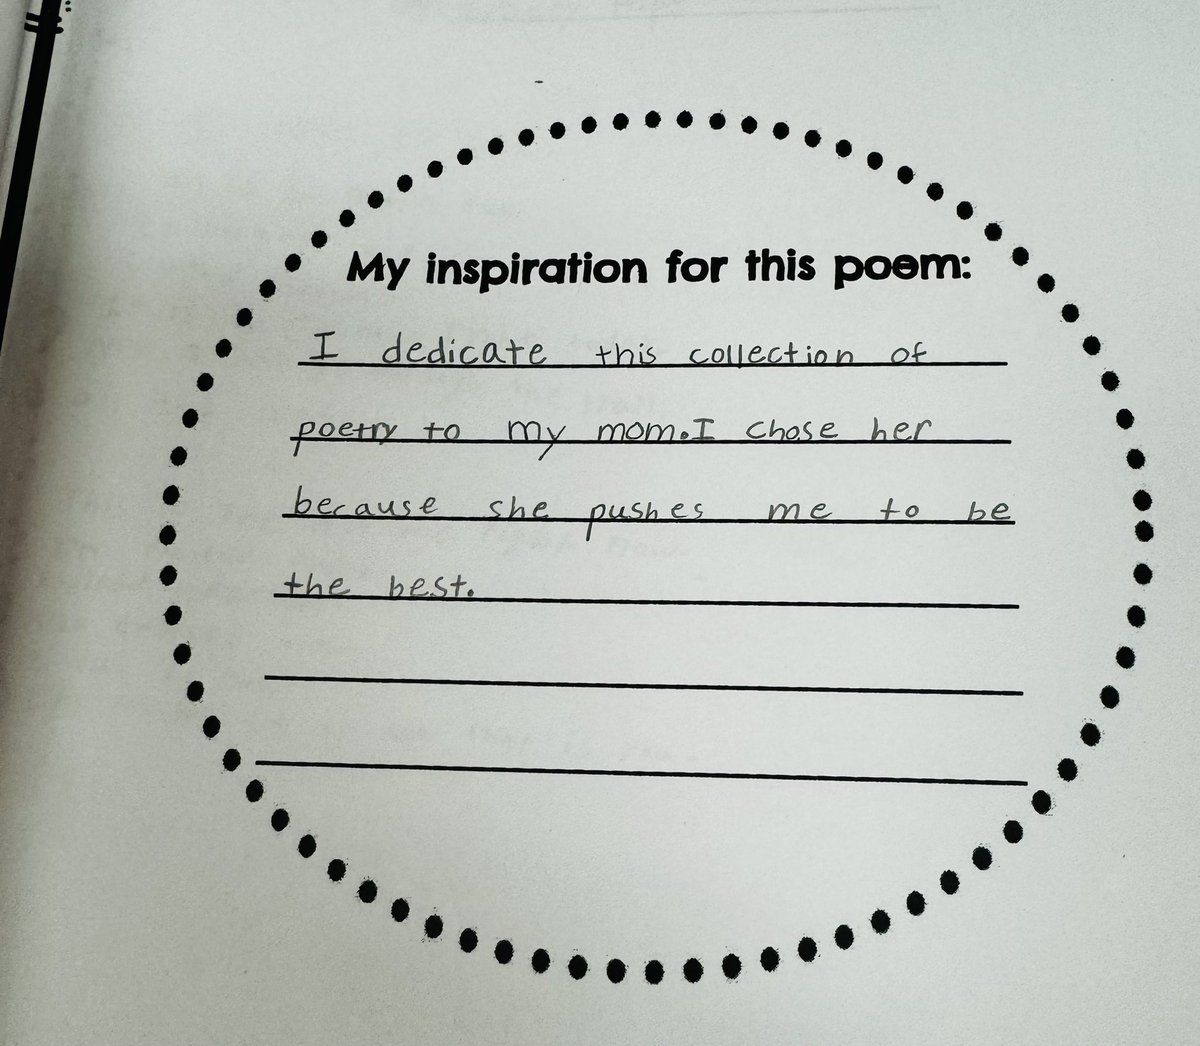 My inspiration for this poem:
I dedicate this collection of
poetry to my mom. I chose her
because she pushes me to be
the best.